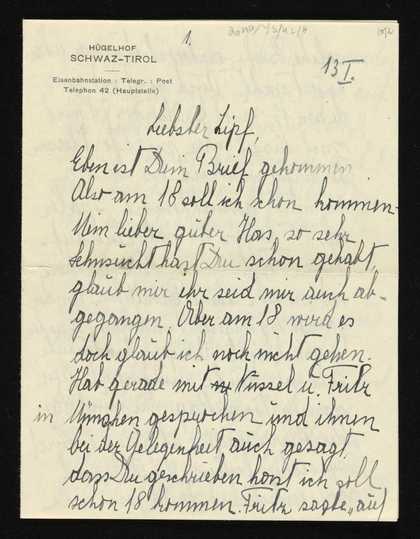 1.
HÜGELHOF
SCHWAZ-TIROL
Eisenbahnstation : Telegr. : Post
Telephon 42 (Hauptstelle)
13 I.
Liebster Lipf,
Eben ist Dein Brief gekommen
Also am 18 soll ich schon kommen
Mein lieber guter Has, so sehr
Sehnsucht hast Du schon gehabt,
glaub mir ihr seid mir auch ab-
gegangen. Aber am 18 wird es
doch glaub ich noch nicht gehen.
Hab gerade mit Nüssel u. Fritz
in München gesprochen und ihnen
bei der Gelegenheit auch gesagt
dass Du geschrieben hast ich soll
schon 18 kommen. Fritz sagte „auf